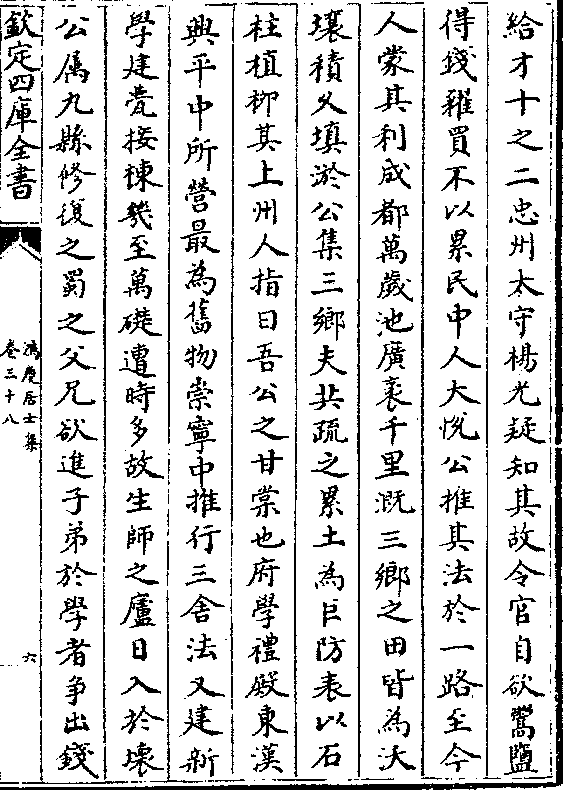 給才十之二忠州太守楊光疑知其故令官自欲鬻鹽
得錢糴買不以累民中人大悅公推其法於一路至今
人蒙其利成都萬歲池廣袤千里溉三鄉之田皆為沃
壤積乆填淤公集三鄉夫共疏之累土為巨防表以石
柱植栁其上州人指曰吾公之甘棠也府學禮殿東漢
興平中所營最為舊物崇寧中推行三舍法又建新
學建甍接棟幾至萬礎遭時多故生師之廬日入於壊
公属九縣修復之蜀之父兄欲進子弟於學者争出錢
欽定四庫全書
鴻慶居士集
卷三十八
六